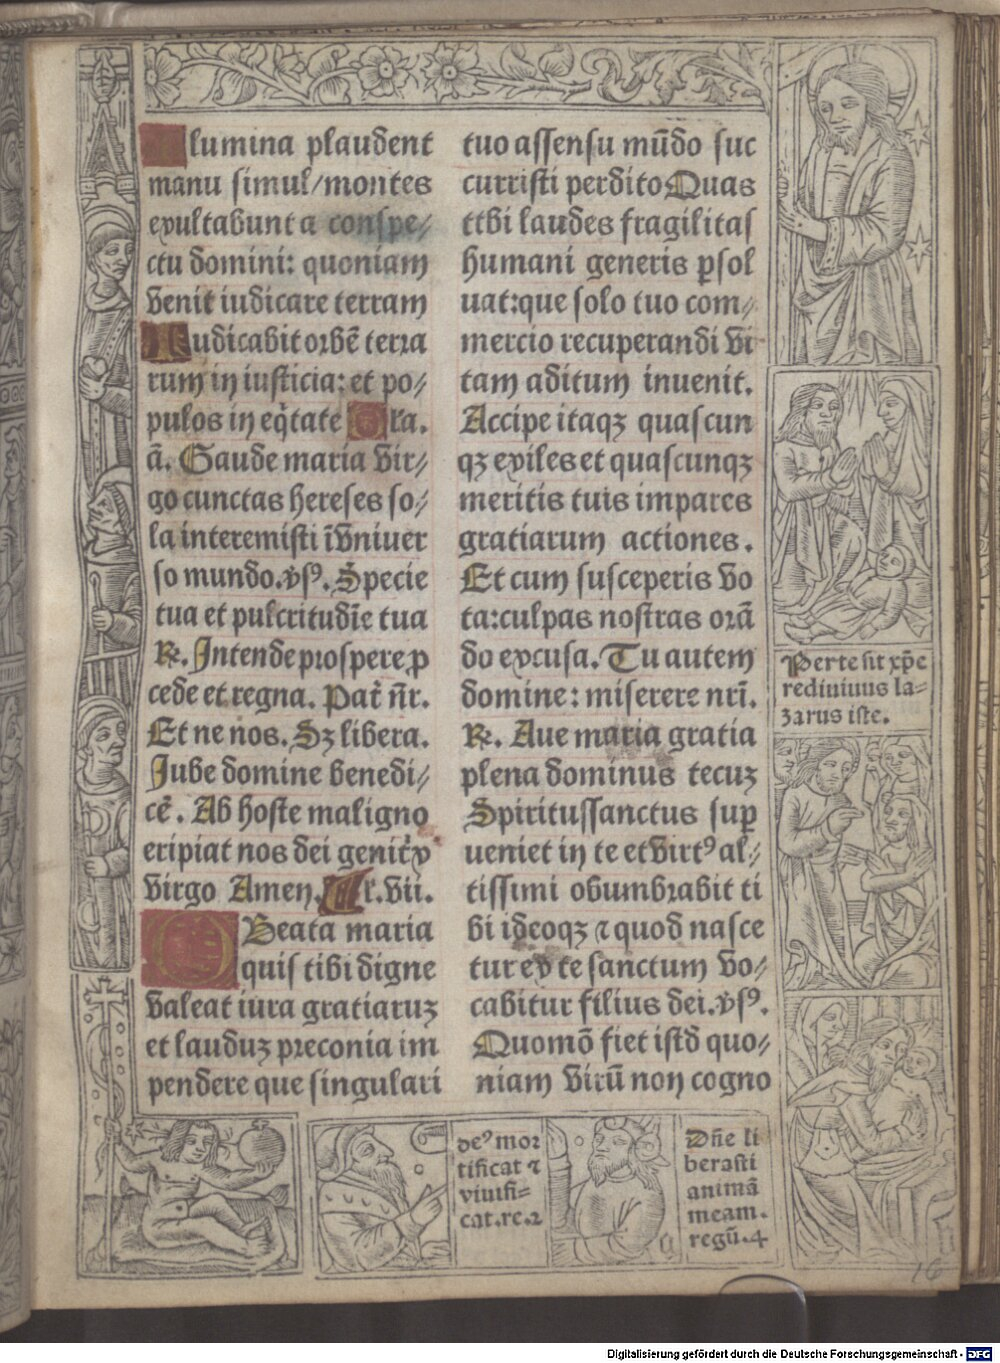 Flumina plaudent
manu simul/montes
exultabunt a conspe/
ctu domini: quoniam
venit iudicare terram
Iudicabit orbē terra
rum in iusticia: et po/
pulos in eq̄tate Gła.
ā. Gaude maria vir/
go cunctas hereses so/
la interemisti ī vniuer
so mundo. v̄sꝰ. Specie
tua et pulcritudīe tua
℞. Intende prospere ꝓ
cede et regna. Pat̄ n̄r.
Et ne nos. Sꝫ libera.
Iube domine benedi/
cē. Ab hoste maligno
eripiat nos dei genit̄x
virgo Amen. Lr. vii.
O Beata maria
quis tibi digne
valeat iura gratiaruꝫ
et lauduꝫ preconia im
pendere que singulari
tuo assensu mūdo suc
curristi perdito Quas
tibi laudes fragilitas
humani generis ꝑsol
uat: que solo tuo com/
mercio recuperandi vi
tam aditum inuenit.
Accipe itaqꝫ quascun
qꝫ exiles et quascunqꝫ
meritis tuis impares
gratiarum actiones.
Et cum susceperis vo
ta: culpas nostras orā
do excusa. Tu autem
domine: miserere nr̄i.
℞. Aue maria gratia
plena dominus tecuꝫ
Spiritussanctus suꝑ
ueniet in te et virtꝰ al/
tissimi obumbrabit ti
bi ideoqꝫ ⁊ quod nasce
tur ex te sanctum vo/
cabitur filius dei. v̄sꝰ.
Quomō fiet istd quo/
niam virū non cogno
Per te fit xp̄e
rediuiuus la=
zarus iste.
deꝰ mor
tificat ⁊
viuifi=
cat. re. 2
Dn̄e li
berasti
animā
meam.
regū. 4
16
Digitalisierung gefördert durch die Deutsche Forschungsgemeinschaft - DFG